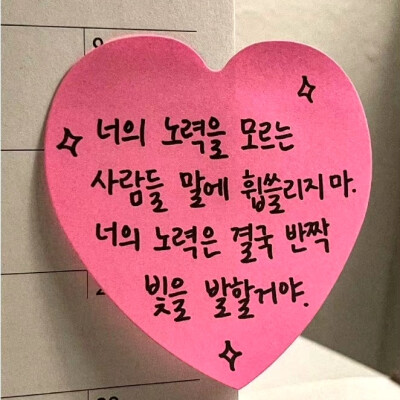 너의 노력을 모르는
사람들 말에 휩쓸리지 마.
너의 노력은 결국 반짝
빛을 발할거야.